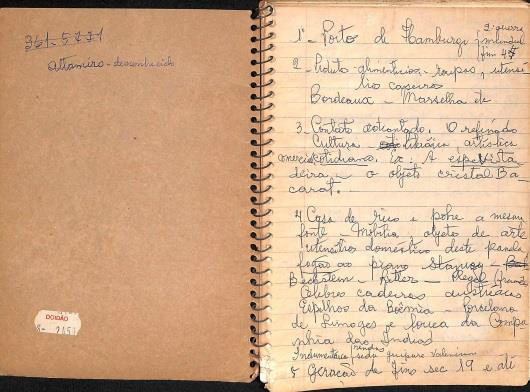 361-5771
altamiro - desconhecido
DOIDÃO
2ª guerra
1º - Porto de Hamburgo
fim 45
2 - Produto alimentícios - roupas, utensí
lio caseiros
Bordeaux - Marselha etc
3. Contato adiantado. O refinado
Cultura literária, artística
cotidiana. Ex: A espevita
deira - o objeto cristal Ba
carat.
4 Casa de rico e pobre a mesma
fonte - Mobília, objeto de arte
utensílio doméstico deste panela
fogão ao piano Stanley -
Bechstein - Ritter - Plegel (franz.
Célebre cadeiras austríacas
Espelhos da Boêmia - Porcelana
de Limoges e louça da Compa
nhia das Índias
Indumentária rendas seda guipure Valencienn
5 Geração de fins sec 19 e até